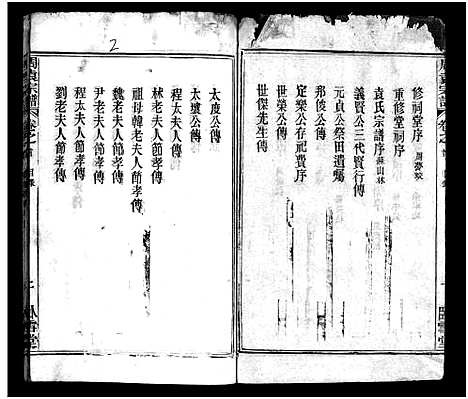 修祠堂序
重修堂祠序
袁氏宗譜序
義賢公三代賢行傳
元貞公祭田遺囑
定樂公存祀費序
邦俊公傳
世榮公傳
世傑先生傳
2
太度公傳
太瓊公傳
程太夫人節孝傳
林老夫人節孝傳
祖母韓老夫人節孝傳
魏老夫人節孝傳
尹老夫人節孝傳
劉老夫人節孝傳
袁宗譜
臥雪堂